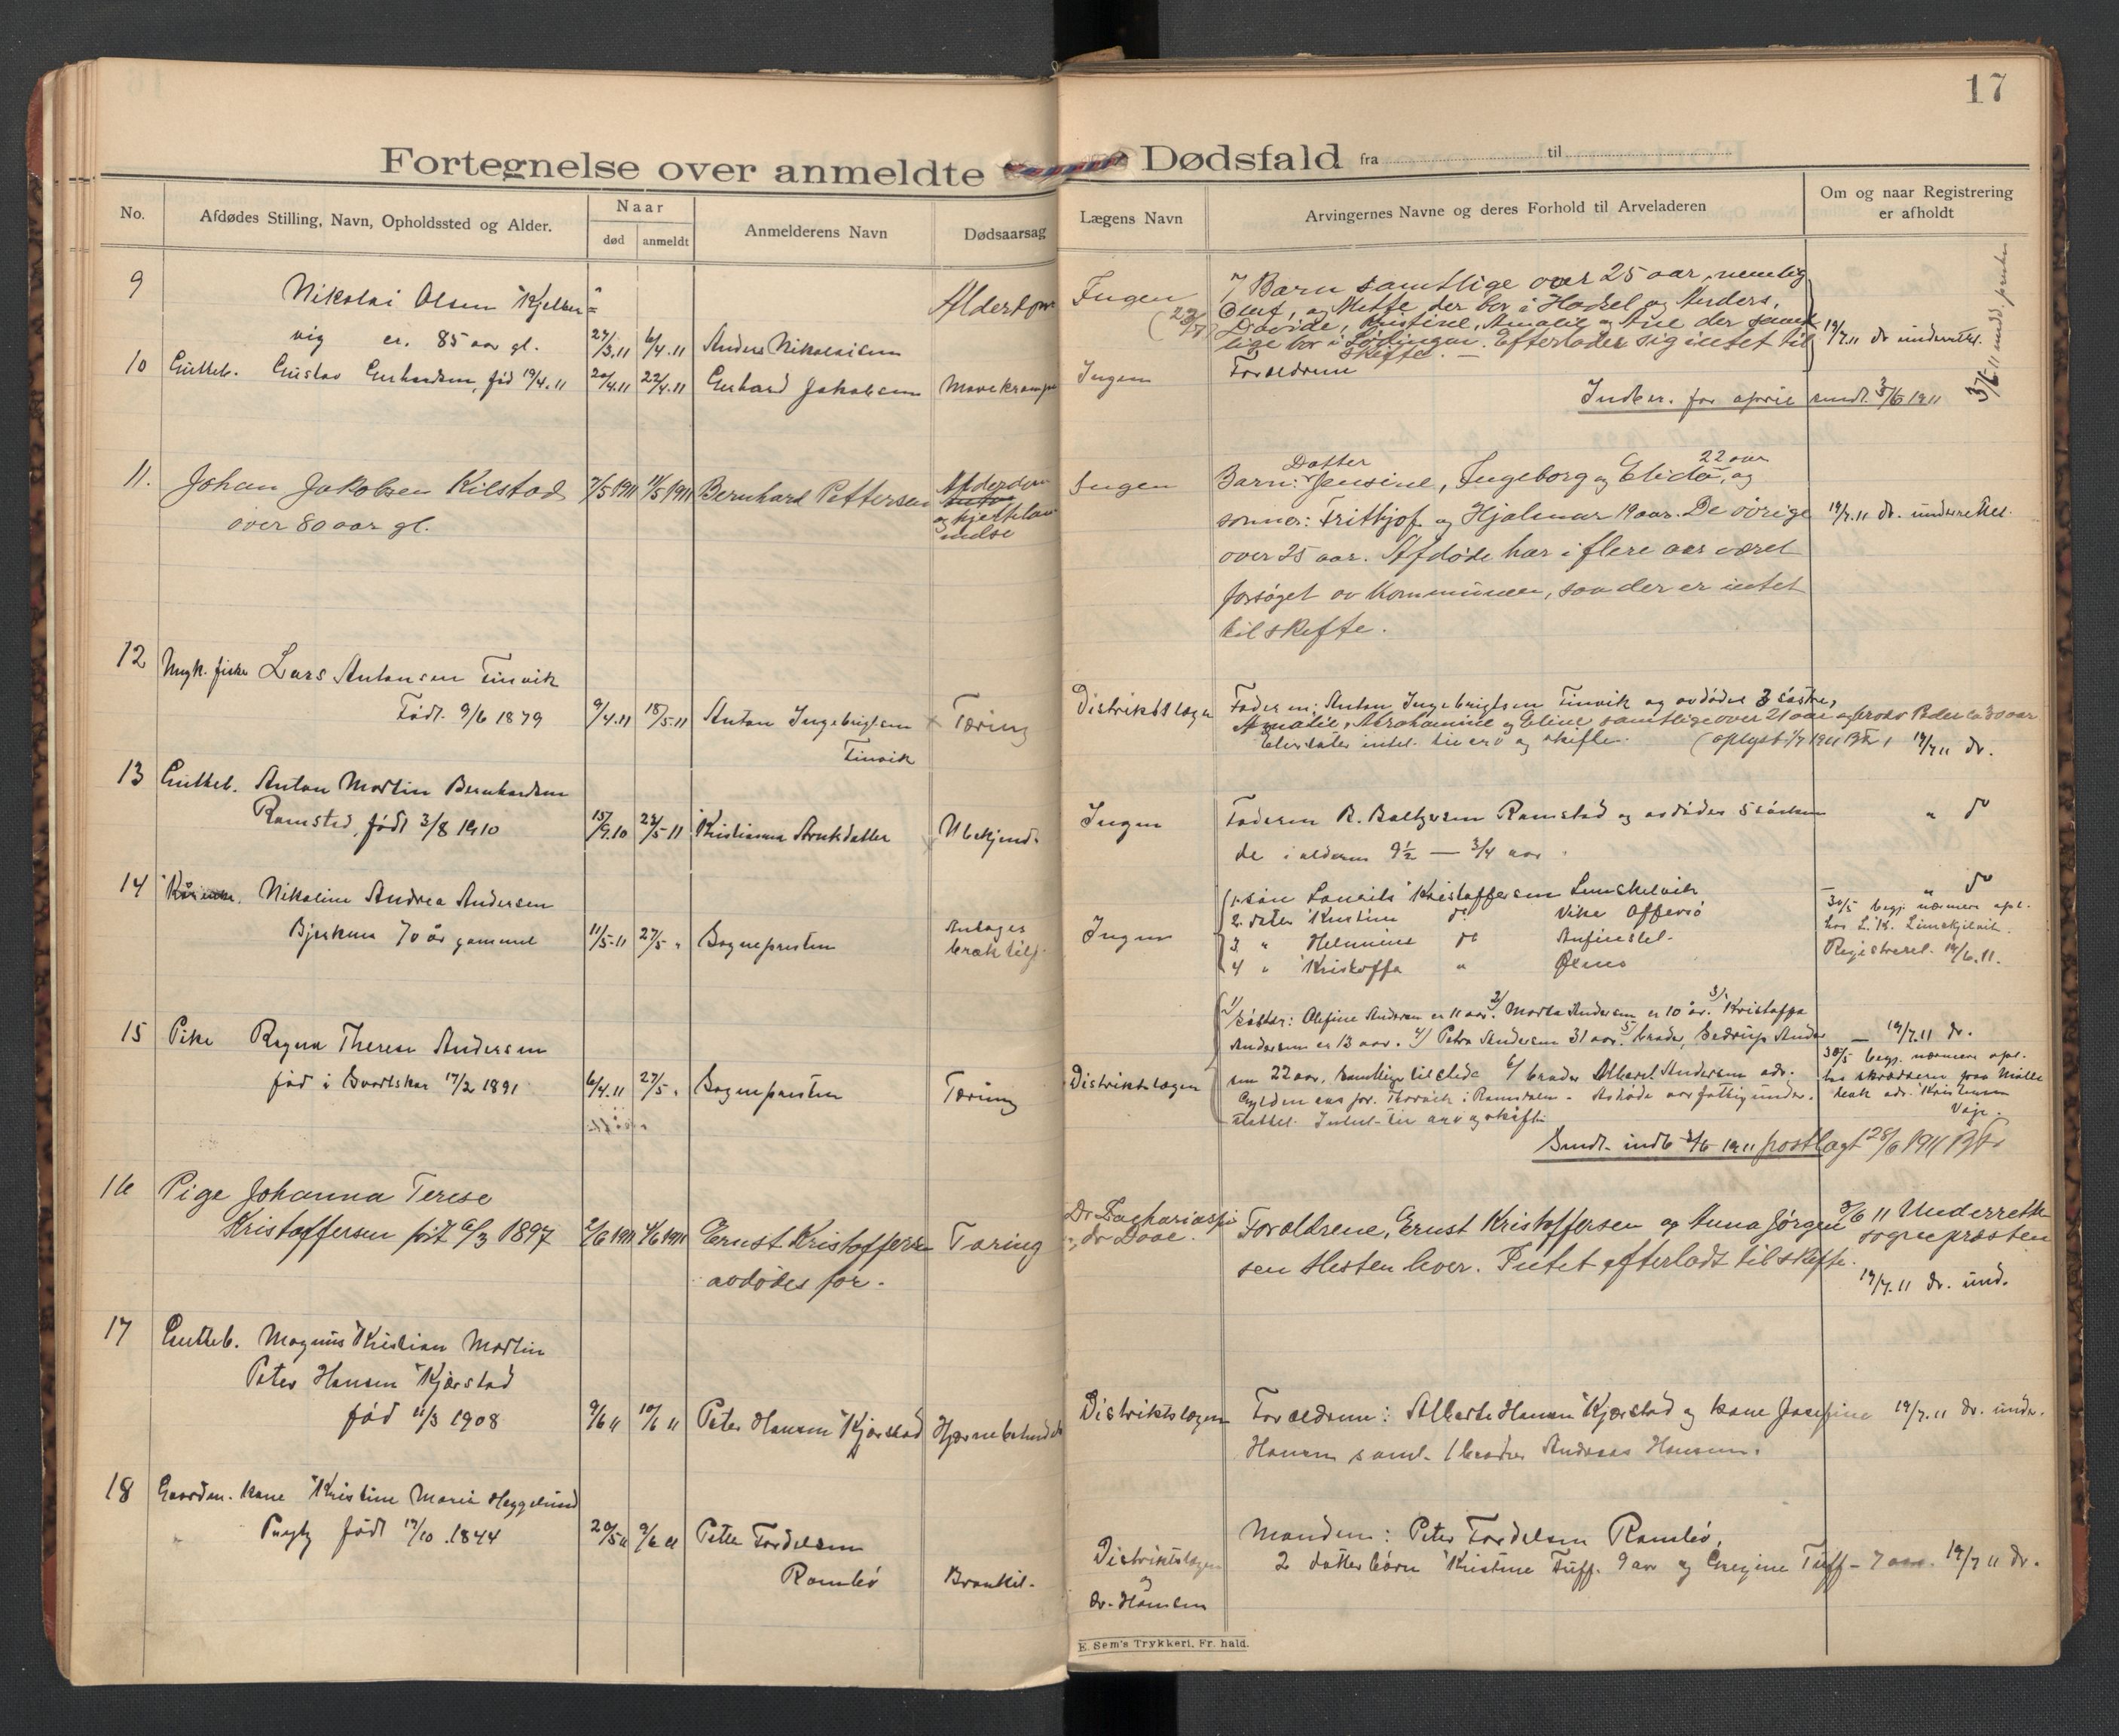 17
Fortegnelse over anmeldte Dødsfald fra til
No.
Afdødes Stilling, Navn, Opholdssted og Alder.
Naar
død anmeldt
Anmelderens Navn
Dødsaarsag
Lægens Navn
Arvingernes Navne og deres Forhold til Arveladeren
Om og naar Registrering
er afholdt
9
Nikolai Olsen Kjelber=
vig er. 85 aar gl.
27/3.11 6/4.11 Anders Nikolaisen
Alderdom
Ingen
7 Barn samtlige over 25 aar, nemlig
Oluf, og Mette der bor i Hadsel og Anders,
Davide, Kristine, Amalie og Ane der samt
lige bor i Lødingen. Efterlader sig intet til
skifte.
19/7.11 dr underrettet.
10 Gutteb. Gustav Gerhardsen, fød 19/4.11
20/4.11 22/4.11 Gerhard Jakobsen Mavekrampe
Ingen
Forældrene
Indber. for april sendt 3/6 1911
11. Johan Jakobsen Kilstad
over 80 aar gl.
7/5 1911 11/5 1911 Bernhard Pettersen
Alderdom
og hjertelam
melse
Ingen
Datter 22 aar
Barn: Jensine, Ingeborg og Elida, og
sønner: Frithjof og Hjalmar 19 aar. De øvrige
over 25 aar. Afdøde har i flere aar været
forsøget av kommunen, saa der er intet
til skifte.
19/7.11 dr. underrettet.
12 Ungk. fisker Lars Antonsen Finvik
Født. 9/6 1879
9/4.11 18/5.11 Anton Ingebrigtsen
Finvik
Tæring
Distriktslægen
Faderen; Anton Ingebrigtsen Finvik og avdødes 3 søstre,
Amalie, Abrahamine og Eline samtlige over 21 aar og broder Peder 30 aar
Efterlater intet til arv og skifte. (oplyst 1/7 1911
19/7 11 dr.
13 Gutteb. Anton Martin Bernhardsen
Ramsted, født 3/8 1910
15/9.10 23/5 11 Kristianna Arntsdatter
Ubekjendt
Ingen
Faderen B. Baltzersen Ramstad og avdødes 5 søsken
de i alderen 9½ — ¾ aar.
" do
14
Nikoline Andrea Andersen
Bjerkum 70 år gammel
11/5-11 27/5 " Sognepresten
Antages
bræktilf.
Ingen
1. søn Lauritz Kristoffersen Limskelvik
2. dater Kristine do Vika Offersø
3 " Helmine do
4 " Kristoffa "
" do
30/5 begj. nærmere opl.
hos L. K. Limskjelvik.
Registreret. 14/6.11.
15 Pike Ragna Therese Andersen
fød i Svartskar 17/2 1891
6/4.11 27/5 " Sognepresten
Tæring
Distriktslægen
1/ søster: Olefine Andersen er 11 aar. 2/ Marta Andersen er 10 år. 3/. Kristoffa
Andersen er 13 aar. 4/ Petra Andersen 31 aar. 5/ broder, Andersen
22 aar. Samtlige tilstede 6/ broder Albert Andersen adr.
i Ramsdalen - Avdøde var fattigunder.
støttet. Intet til arv og skifte
— 19/7.11 dr.
30/5 begj. nærmere opl.
Sendt. indb 3/6 1911 postlagt 28/6 1911
16 Pige Johanna Terese
Kristoffersen født 6/3 1897
2/6 1911 4/6 1911 Ernst Kristoffersen
avdødes far.
Tæring
Dr Zachariassen
dr Daae.
Forældrene, Ernst Kristoffersen og Anna Jørgen
sen Hesten lever. Intet efterladt til skifte.
3/6 11 Underrettet
sognepræsten
19/7.11 dr. und.
17 Gutteb. Magnus Kristian Martin
Peter Hansen Kjørstad
fød 11/3 1908
9/6 11 10/6 11 Peter Hansen Kjørstad Hjernebetendelse
Distriktslægen
Forældrene: Alberte Hansen Kjørstad og kone Josefine
Hansen samt 1 broder Andreas Hansen.
19/7.11 dr. under.
18 Gaardm. kone Kristine Marie Heggelund
født 17/10.1844
20/5 11 9/6 11 Peter Fordelsen
Ramlø
Bronkit.
Distriktslægen
og
dr. Hansen
Manden: Peter Fordelsen Ramlø,
2 datterbørn Kristine Tuff. 9 aar og Gregine Tuff - 7 aar. 19/7 11 dr.
E. Sem's Trykkeri, Fr. hald.